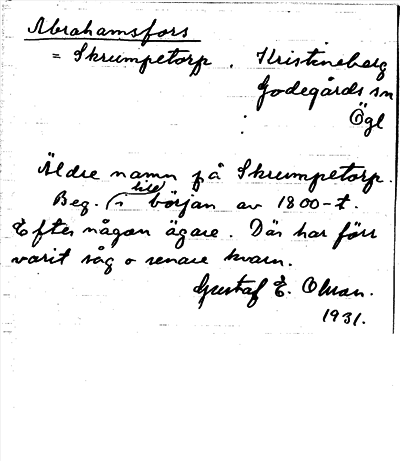 Abrahamsfors
= Skrumpetorp. Kristineberg
Godegårds sn
Ögl
Äldre namn på Skrumpetorp.
till
Beg. i början av 1800-t.
Efter någon ägare. Där har förr
varit såg o senare kvarn.
Gustaf E. Olman.
1931.